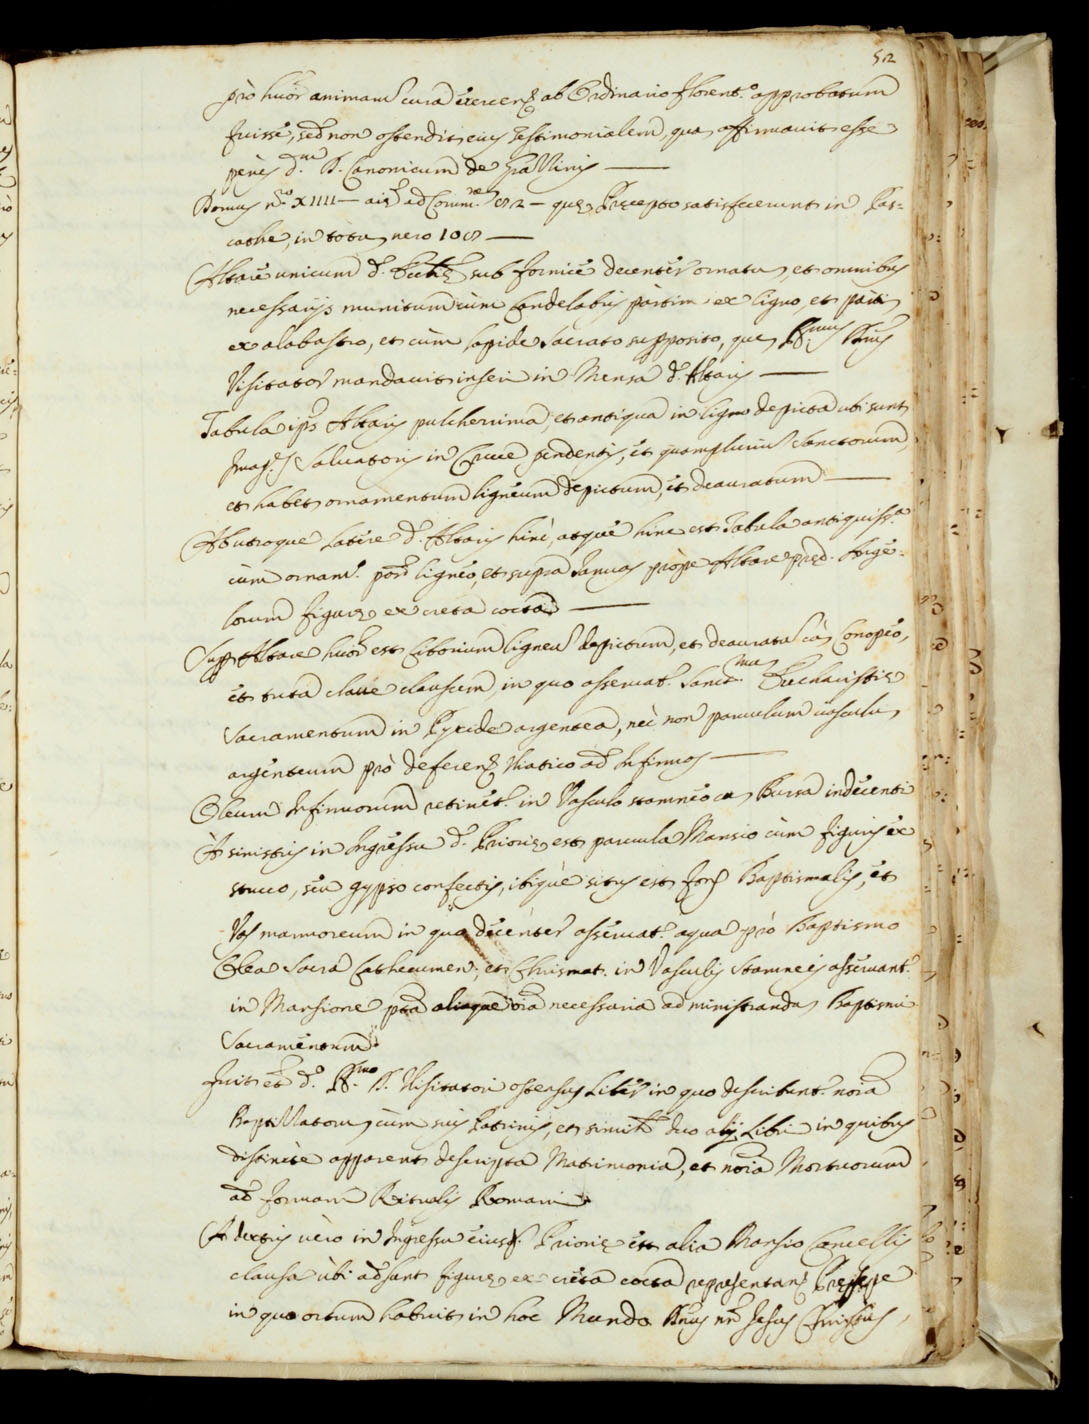 52
prò huõr animarũ cura exercen̄ ab Ordinario florent.º approbatum
fuisse, sed non ostendit eius testimonialem, qua affirmavit esse
penes d.
Domus n.º XIIII — ad Comm. 52 — que Precepto satisfecerunt in Pas=
cathe, in totu, vero 108 —
Altare unicum d. Eccl. sub fornice decenter ornatu, et omnibus
necessarijs munitum cùm Candelabris pàrtim ex ligno, et parti
ex alabastro, et cùm lapide Sacrato supposito, que,
Visitator mandavit inseri in Mensa d. Altaris —
Tabula ips Altaris pulcherrima, et antiqua in ligno depicta ubi sunt
Imag. Salvatoris in Cruce pendentis, et quamplurimũ Sanctorum,
et habet ornamentum ligneum depictum, et deauratum —
Ab utroque latere d. Altaris hinc, atque hinc est Tabula antiquiss.ª
cùm ornam. ligneo, et supra Januas pròpe Altare pred. Ange=
lorum figure ex creta cocta —
Supr Altare huõr est Ciborium ligneũ depictum, et deauratũ cũ Conopeo,
et tuta clave clausum, in quo asservat. Sanct.ma Eucharistie
Sacramentum in Pyxide argentea, nec non parvulum vasculu,
argenteum prò deferen. Viatico ad Infirmos —
Oleum Infirmorum retinet. in Vasculo stamneo cu, Bursa indecenti
A sinistris in Ingressu d. Priorie est parvula Mansio cùm figuris ex
stucco, seu gypso confectis, ibique situs est fons Baptismalis, et
Vas marmoreum in quo decenter asservat. aqua prò Baptismo
Olea Sacra Cathecumen. et Chrismat. in Vasculis Stamneis asservant.
in Mansione pta aliaque oia necessaria ad ministranda, Baptismi
Sacramentum.
Fuit et d.º R.mo D. Visitatori ostensus Liber in quo describunt. noia
Baptizatoru, cùm suis Patrinis, et simil. duo alij Libri in quibus
distincte apparent descripta Matrimonia, et noia Mortuorum
ad formam Ritualis Romani.
A dextris vero in Ingressu eiusd. Priorie est alia Mansio Cancellis
clausa ubi adsunt figure ex creta cocta representan. Presepe
in quo ortum habuit in hoc Mundo Dnus nr Jesus Christus,